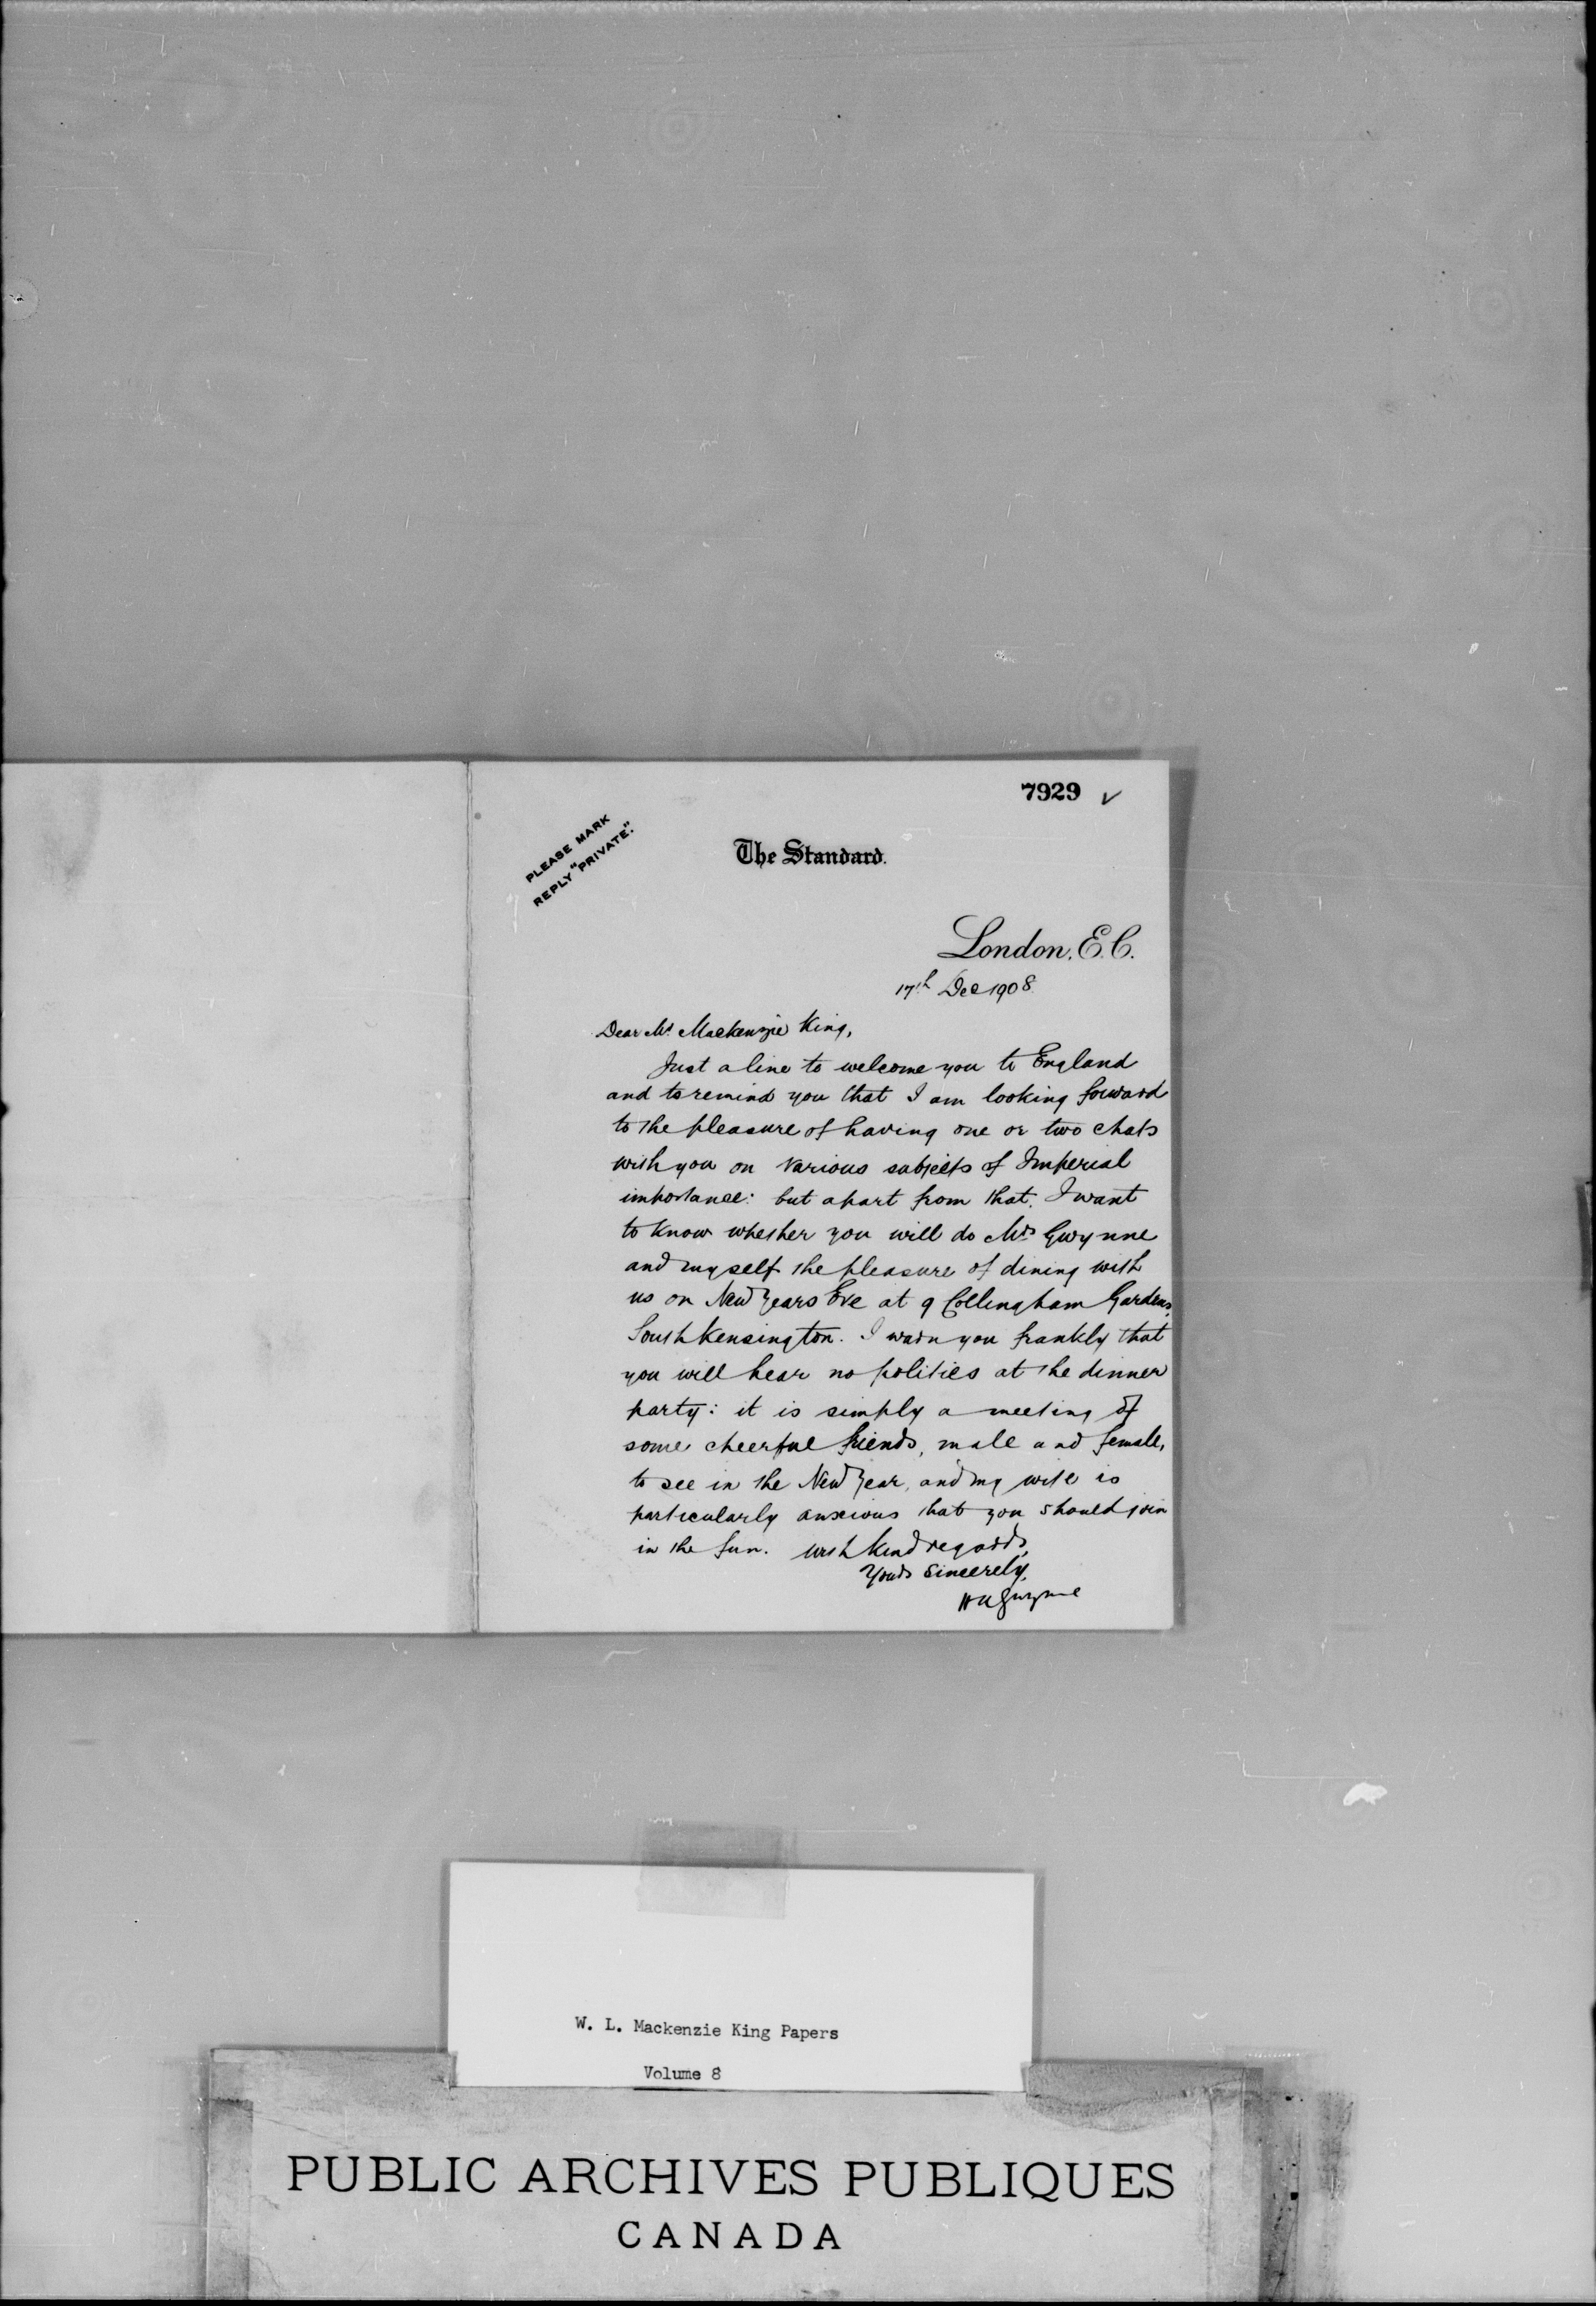 7929 ✓
PLEASE MARK
REPLY "PRIVATE".
The Standard.
London, E.C.
17th Dec 1908.
Dear Mr Mackenzie King,
Just a line to welcome you to England
and to remind you that I am looking forward
to the pleasure of having one or two chats
with you on various subjects of Imperial
importance: but apart from that. I want
to know whether you will do Mrs Gwynne
and myself the pleasure of dining with
us on New Years Eve at 9 Collingham Gardens,
South Kensington. I warn you frankly that
you will hear no politics at the dinner
party: it is simply a meeting of
some cheerful friends, male and female,
to see in the New Year, and my wife is
particularly anxious that you should join
in the fun. With kind regards,
Yours sincerely,
H A Gwynne
W. L. Mackenzie King Papers
Volume 8
PUBLIC ARCHIVES PUBLIQUES
CANADA